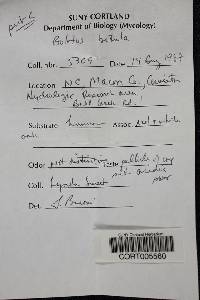 part C
SUNY CORTLAND
Department of Biology (Mycology)
Boletus betula
Coll. nbr. 5309 Date 14 Aug 1987
Location N.C. Macon Co., Coweeta
Hydrologic Research area
Ball Creek Rd.
Substrate humus Assoc. red & white
oak
Odor not distinctive
Coll.
Det.
SUNY Cortland Herbarium
CORT005560